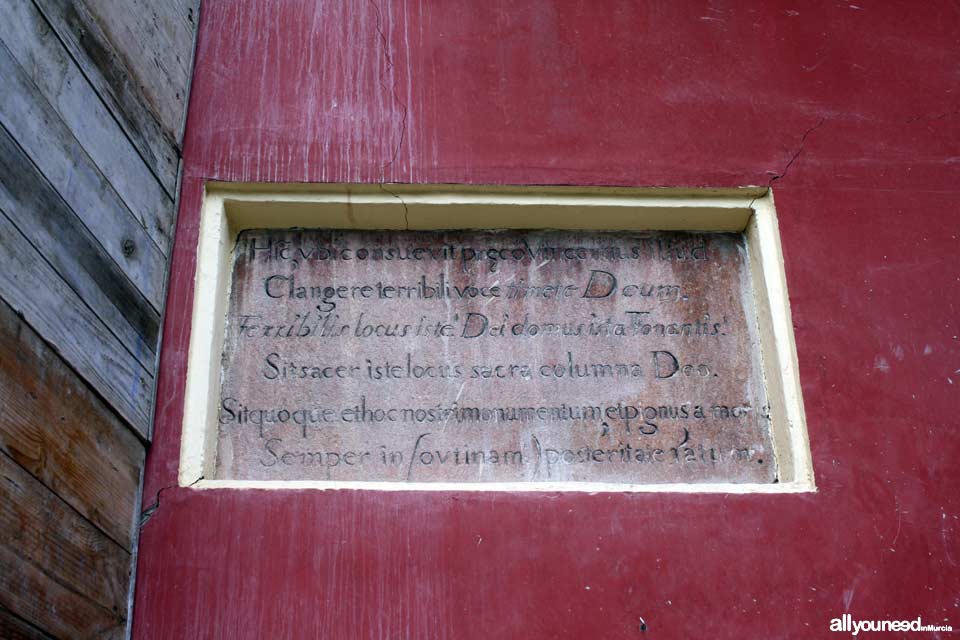 Hic ubi consuevit pręco Vincentius
Clangere terribili voce timete Deum.
Terribilis locus iste Dei domus ista Tonantis
Sit sacer iste locus sacra columna Deo.
Sit quoque et hoc nostri monumentum, et pignus amoris
Semper in
allyouneed inMurcia